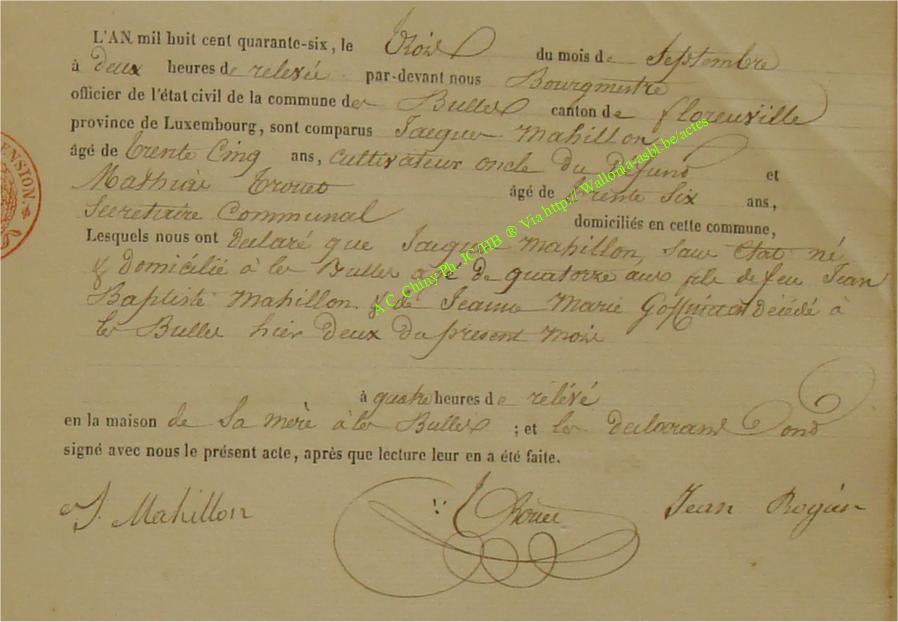 L'AN mil huit cent quarante-six, le trois du mois de Septembre
à deux heures de relevée par-devant nous Bourgmestre
officier de l'état civil de la commune de les Bulles canton de florenville
province de Luxembourg, sont comparus Jacques Mahillon
âgé de trente Cinq ans, cultivateur oncle du defunt et
Mathieu trouet âgé de trente Six ans,
Secretaire Communal domiciliés en cette commune,
Lesquels nous ont declaré que Jacques Mahillon, sans Etat né
& domicilié à les Bulles agé de quatorze ans fils de feu Jean
Baptiste Mahillon & de Jeanne Marie décédé à
les Bulles hier deux du présent mois
à quatre heures de rélévé
en la maison de Sa mère à les Bulles ; et les declarans ond
signé avec nous le présent acte, après que lecture leur en a été faite.
J. Mahillon Trouet Jean Rogier
ENSION.
A C Chiny Ph JC HB ® Via http://Wallonia-asbl.be/actes